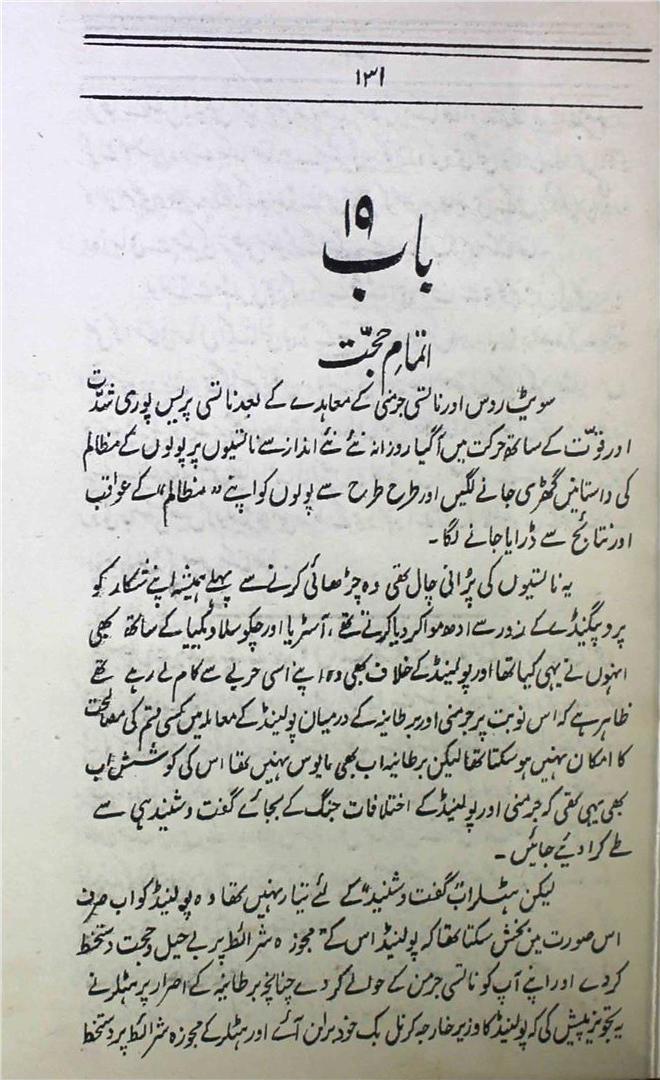 ۱۳۱
باب ۱۹
اتمامِ حجّت
سویٹ روس اور ناتسی جرمنی کے معاہدے کے بعد ناتسی پریس پوری شدّت
اور قوّت کے ساتھ حرکت میں آگیا روزانہ نئے نئے انداز سے ناتسیوں پر پولوں کے مظالم
کی داستانیں گھڑی جانے لگیں اور طرح طرح سے پولوں کو اپنے "مظالم" کے عواقب
اور نتائج سے ڈرایا جانے لگا۔
یہ ناتسیوں کی پُرانی چال تھی وہ چڑھائی کرنے سے پہلے ہمیشہ اپنے شکار کو
پروپگینڈے کے زور سے ادھ موا کر دیا کرتے تھے، آسٹریا اور چکوسلاویکیا کے ساتھ بھی
انہوں نے یہی کیا تھا اور پولینڈ کے خلاف بھی وہ اپنے اسی حربے سے کام لے رہے تھے
ظاہر ہے کہ اس نوبت پر جرمنی اور برطانیہ کے درمیان پولینڈ کے معاملہ میں کسی قسم کی مصالحت
کا امکان نہیں ہو سکتا تھا لیکن برطانیہ اب بھی مایوس نہیں تھا اس کی کوشش اب
بھی یہی تھی کہ جرمنی اور پولینڈ کے اختلافات جنگ کے بجائے گفت و شنید ہی سے
طے کرا دیئے جائیں۔
لیکن ہٹلر اب "گفت و شنید" کے لئے تیار نہیں تھا وہ پولینڈ کو اب صرف
اس صورت میں بخش سکتا تھا کہ پولینڈ اس کے "مجوزہ شرائط پر بے حیل و حجت دستخط
کر دے اور اپنے آپ کو ناتسی جرمن کے حوالے کر دے چنانچہ برطانیہ کے اصرار پر ہٹلر نے
یہ تجویز پیش کی کہ پولینڈ کا وزیر خارجہ کرنل بک خود برلن آئے اور ہٹلر کے مجوزہ شرائط پر دستخط